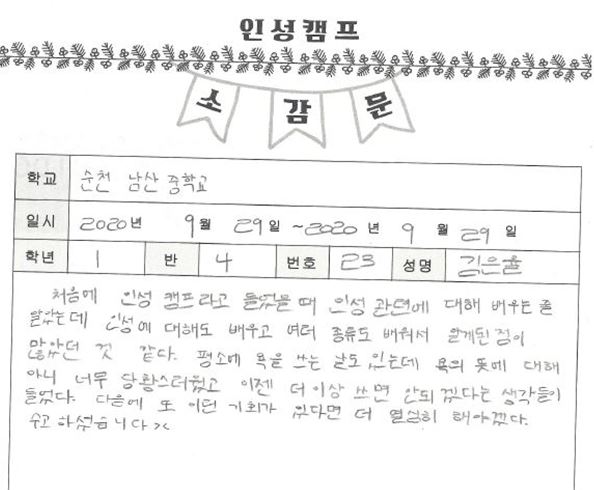 인성캠프
소감문
학교 순천 남산 중학교
일시 2020년 9월 29일 ~2020년 9월 29일
학년 1 반 4 번호 23 성명 김은율
처음에 인성 캠프라고 들었을 때 인성 관련에 대해 배우는 줄
알았는데 인성에 대해도 배우고 여러 종류도 배워서 알게된 점이
많았던 것 같다. 평소에 욕을 쓰는 날도 있는데 욕의 뜻에 대해
아니 너무 당황스러웠고 이젠 더이상 쓰면 안되겠다는 생각들이
들었다. 다음에 또 이런 기회가 있다면 더 열심히 해야겠다.
수고하셨습니다><